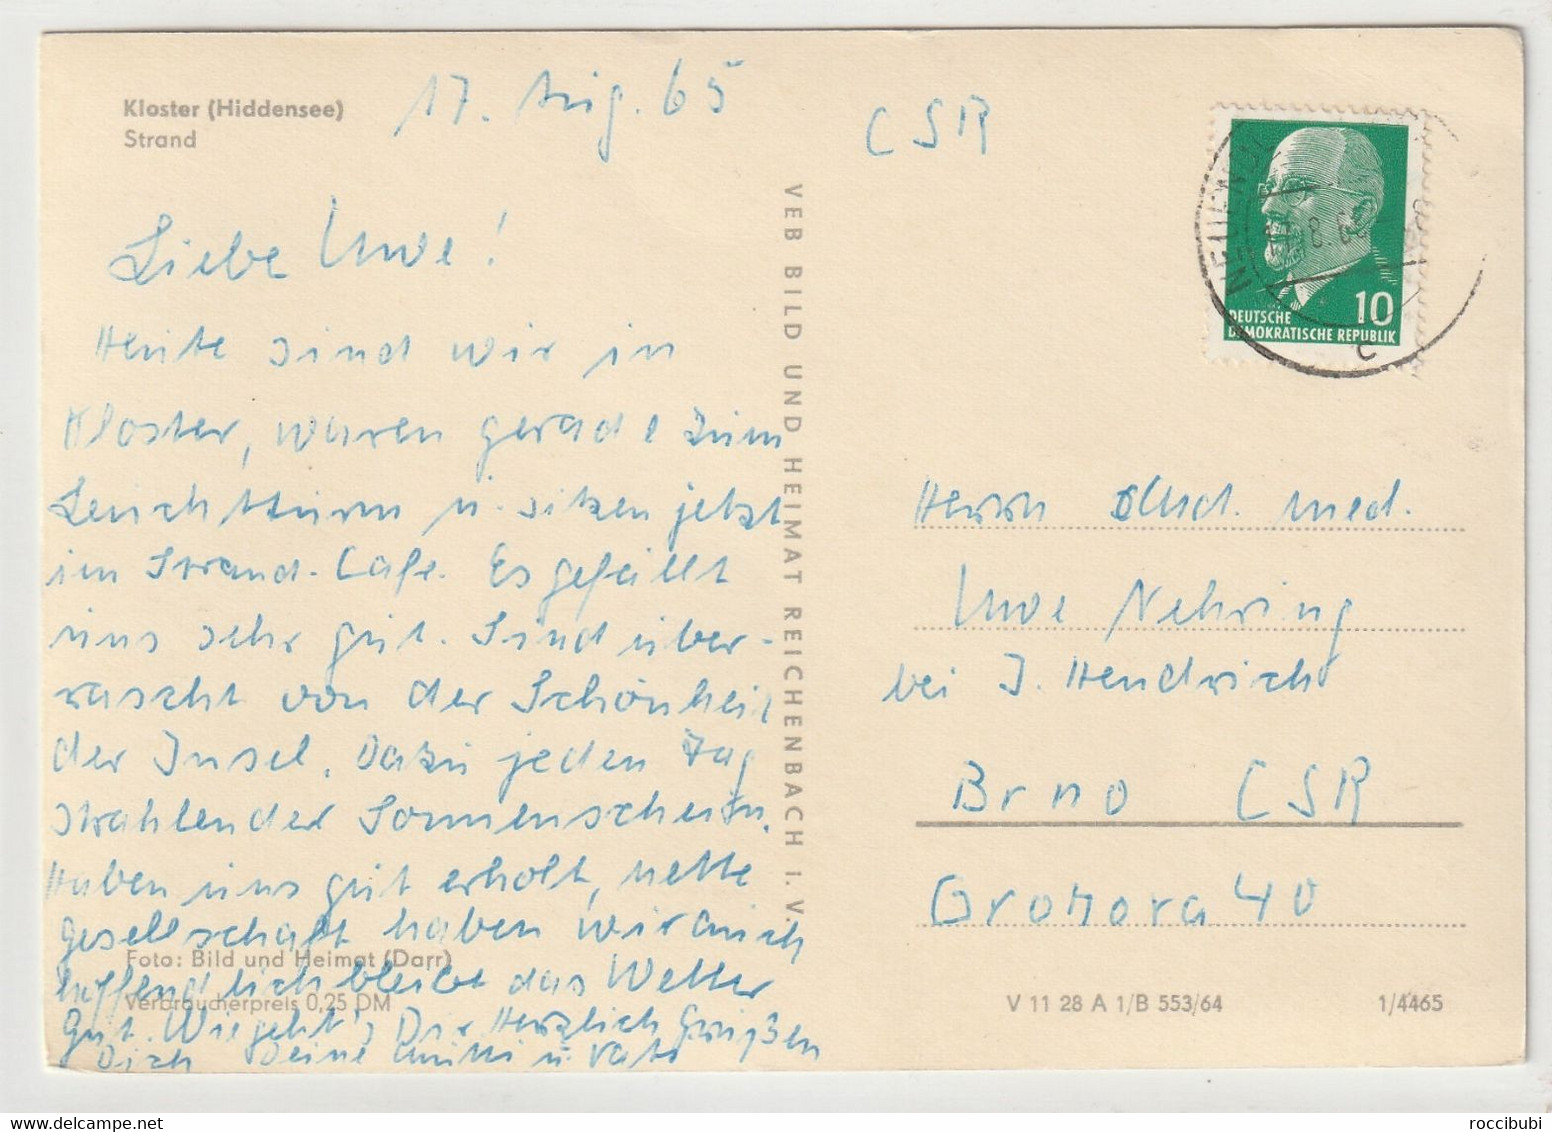 Kloster (Hiddensee)
Strand
17. Aug. 65
Liebe Uwe!
Heute sind wir in
Kloster, waren gerade zum
Leuchtturm u. sitzen jetzt
im Strand-Cafe. Es gefällt
uns sehr gut. Sind über-
rascht von der Schönheit
der Insel. Dazu jeden Tag
strahlender Sonnenschein.
Haben uns gut erholt, nette
Gesellschaft haben wir auch
hoffendlich bleibt das Wetter
gut. Wie geht's Dir Herzlich Grüßen
Dich Deine Mutti u. Vati
Foto: Bild und Heimat (Darr)
Verbraucherpreis 0,25 DM
VEB BILD UND HEIMAT REICHENBACH I. V.
CSR
DEUTSCHE
DEMOKRATISCHE REPUBLIK
10
8.6
c
Herrn med.
Uwe Nehring
bei J. Hendrich
Brno CSR
Grohova 40
V 11 28 A 1/B 553/64
1/4465
roccibubi